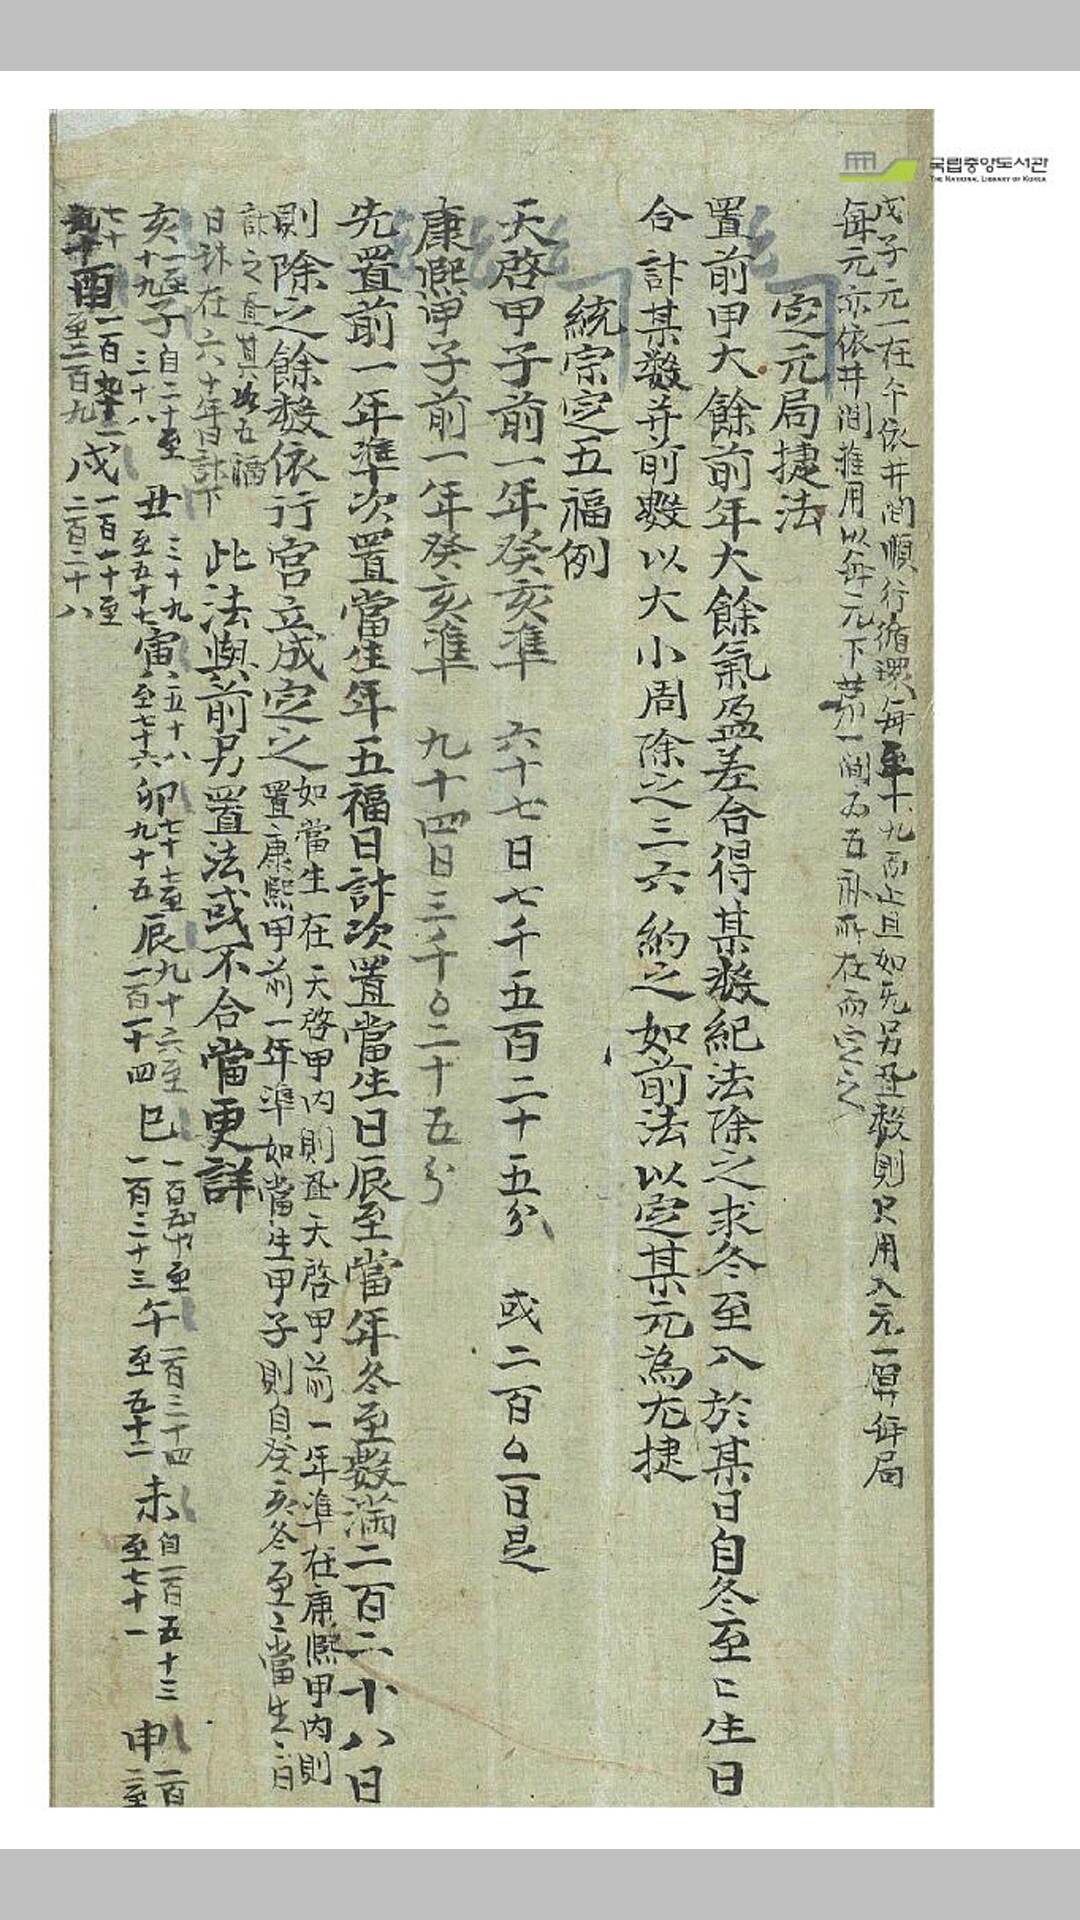 국립중앙도서관
THE NATIONAL LIBRARY OF KOREA
戊子元一在午依井間順行循環每至十九而止且如先另置数則只用入元一算每局
每元亦依井間推用以每元下第一間為五福所在而定之
定元局捷法
置前甲大餘前年大餘氣盈差合得某数紀法除之求冬至入於某日自冬至〻生日
合計某数并前數以大小周除之三六約之如前法以定某元為尤捷
統宗定五福例
天啓甲子前一年癸亥準 六十七日七千五百二十五分 或二百〇一日是
康熙甲子前一年癸亥準 九十四日三千〇二十五分
先置前一年準次置當生年五福日計次置當生日辰至當年冬至數滿二百二十八日
則除之餘数依行宮立成定之
如當生在天啓甲內則置天啓甲前一年準在康熙甲內則
置康熙甲前一年準如當生甲子則自癸亥冬至〻當生〻日
計之置其五福
日計在六十年日計下
此法與前另置法或不合當更詳
亥 一至十九
子 自二十至三十八
丑 三十九至五十七
寅 五十八至七十六
卯 七十七至九十五
辰 九十六至一百一十四
巳 一百十五至一百三十三
午 一百三十四至五十二
未 自一百五十三至七十一
申 一百七十二至九十
酉 一百九十一至二百九
戌 二百一十至二百二十八